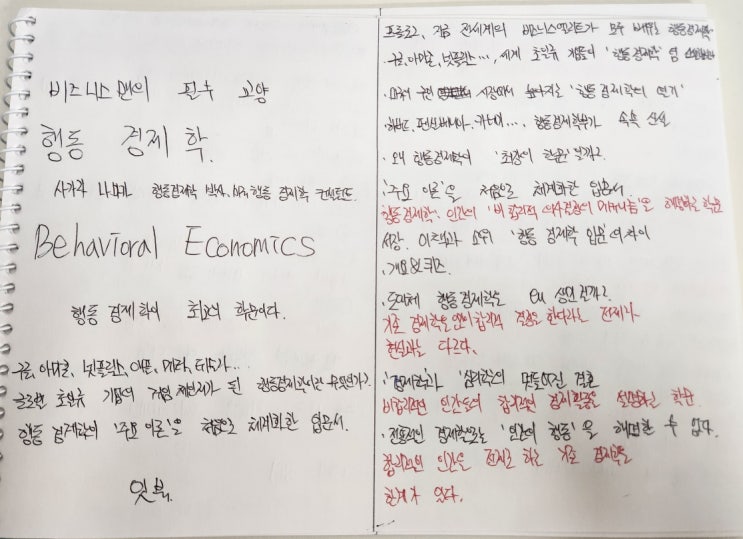 비즈니스맨의 필수 교양
행동 경제학.
사가라 나미카 행동경제학 박사. 행동 경제학 컨설턴트.
Behavioral Economics
행동 경제학이 최강의 학문이다.
구글, 아마존, 넷플릭스, 애플, 메타, 테슬라...
글로벌 초일류 기업의 거임 체인저가 된 행동경제학이란 무엇인가?
행동 경제학의 '주요 이론'을 처음으로 체계화한 입문서.
잇북.
프롤로그, 지금 전세계의 비즈니스엘리트가 모두 배우는 행동경제학
·구글, 아마존, 넷플릭스..., 세계 초일류 기업들이 '행동경제학' 팀
시장에서 높아지는 '행동 경제학의 열기'
하버드. 펜실베니아. 카네기..., 행동경제학부가 속속 신설
·왜 행동경제학이 '최강의 학문'일까?
'주요 이론'을 처음으로 체계화한 입문서.
행동경제학: 인간의 '비합리적 의사결정의 메커니즘'을 해명하는 학문
서장. 이 책만의 '행동 경제학 입문'의 차이
·개요 & 퀴즈.
·도대체 행동경제학은 왜 생언던까?
기존 경제학은 인간이 합리적 결정을 한다라는 전제가
현실과는 다르다.
·'경제학'과 '심리학'의 모들어진 결혼
비합리적인 인간들의 합리적인 경제활동을 설명하는 학문
·전통적인 경제학으로는 '인간의 행동'을 해명할 수 없다.
합리적인 인간을 전제로 하는 기존 경제학은
한계가 있다.